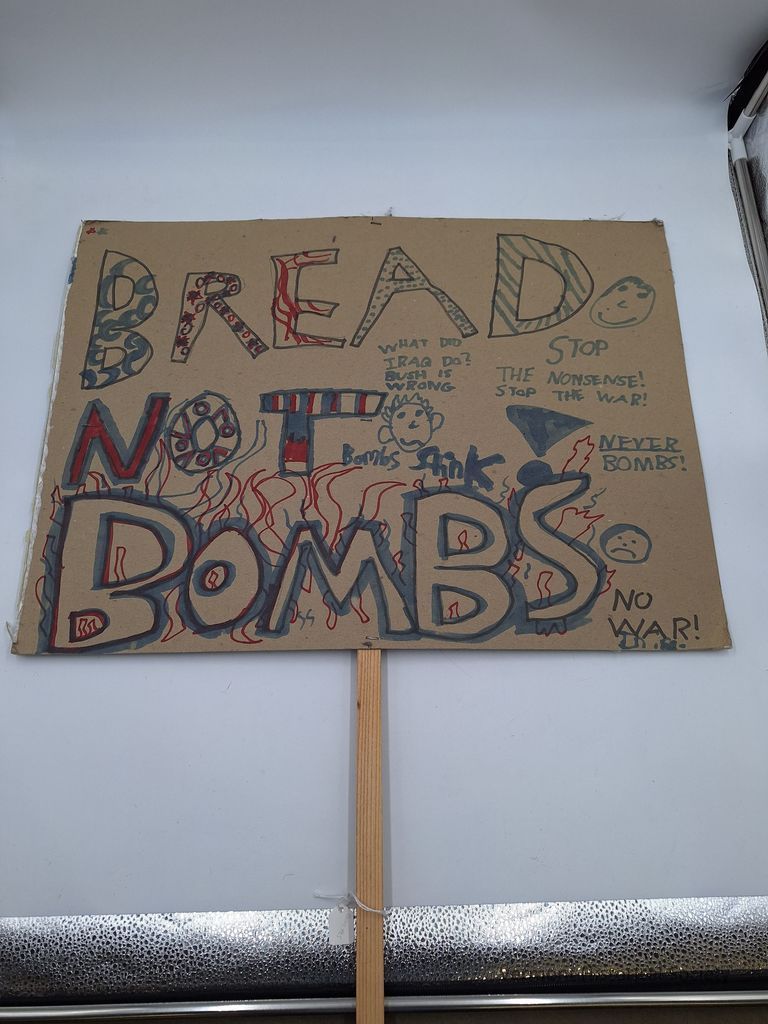 BREAD
WHAT DID
IRAQ DO?
BUSH IS
WRONG
STOP
THE NONSENSE!
STOP THE WAR!
NOT
Bombs Stink
NEVER
BOMBS!
BOMBS
NO
WAR!